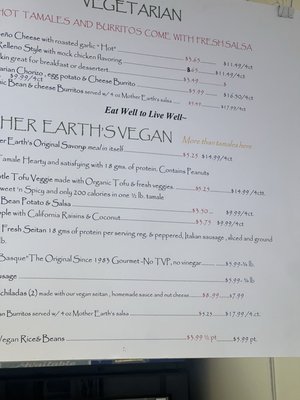 VEGETARIAN
HOT TAMALES AND BURRITOS COME WITH FRESH SALSA
eño Cheese with roasted garlic "Hot" $3.65 $11.49/4ct
Relleno Style with mock chicken flavoring $11.49/4ct
kin great for breakfast or dessert $3.49
arian Chorizo, egg potato & Cheese Burrito $5.99 $16.50/4ct
$9.99/4ct
nic Bean & Cheese Burritos served w/ 4 oz Mother Earth's salsa $17.99/4ct
Eat Well to Live Well~
HER EARTH'S VEGAN More than tamales here
er Earth's Original Savory meal in itself $5.25 $14.99/4ct
Tamale Hearty and satisfying with 18 gms. of protein. Contains Peanuts
tle Tofu Veggie made with Organic Tofu & fresh veggies $5.25 $14.99/4ct
weet 'n Spicy and only 200 calories in one ½ lb. tamale
Bean Potato & Salsa $3.50 $9.99/4ct
ple with California Raisins & Coconut $3.75 $9.99/4ct
Fresh Seitan 18 gms of protein per serving reg. & peppered, Italian sausage, sliced and ground
lb.
Basque*The Original Since 1983 Gourmet -No TVP, no vinegar $5.99-¾ lb.
usage $5.99-¾ lb
chiladas (2) made with our vegan seitan, homemade sauce and nut cheese $8.99 $7.99
an Burritos served w/ 4 oz Mother Earth's salsa $5.25 $17.99/4 ct.
Vegan Rice & Beans $3.99 ½ pt $5.99 pt.